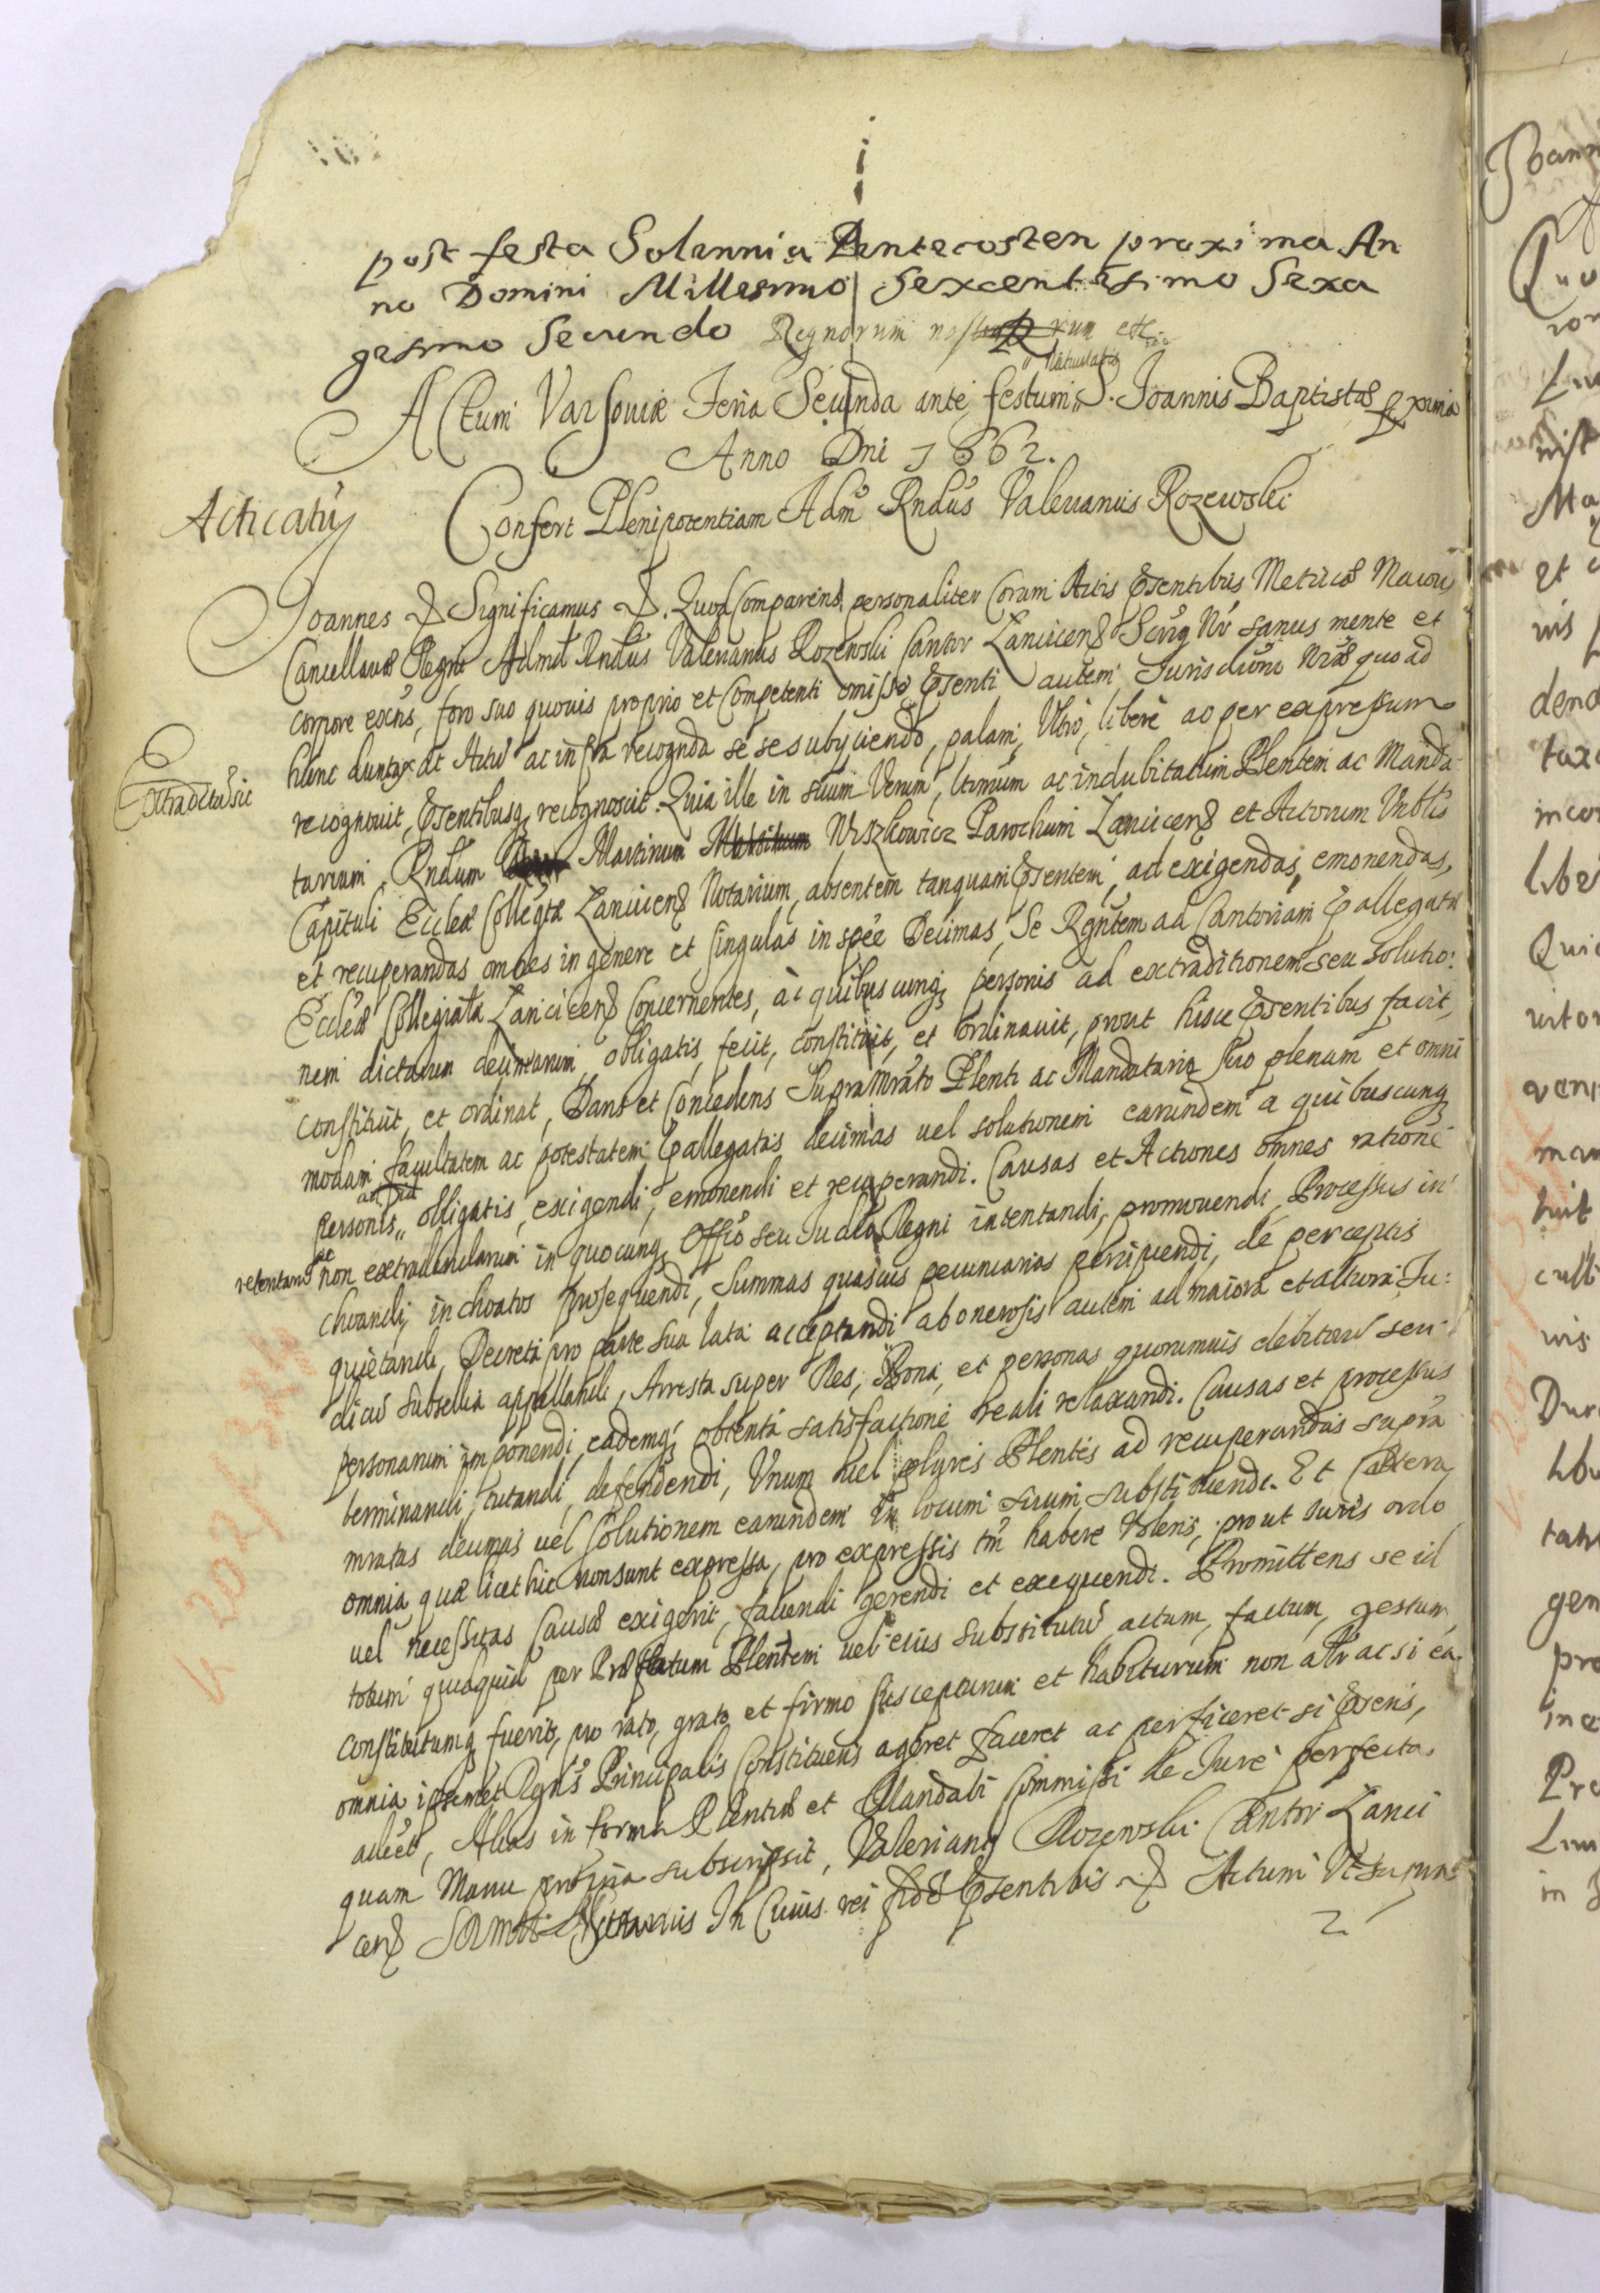 post festa Solennia Pentecosten proxima An
no Domini Millesimo Sexcentesimo Sexa
gesimo Secundo Regnorum nostrorum etc.
Natiuitatis
Actum Varsouiæ Feria Secunda ante festum S. Joannis Baptistæ pxima
Anno Dni 1662.
Acticatū Confert Plenipotentiam Adm Rndus Valerianus Rozewski
Joannes Significamus Quod Comparens personaliter Coram Actis Pñtibus Metrices Maioris
Cancellariæ Regni Admd Rndus Valerianus Rozewski Cantor Lanicicens Secrius Nr sanus mente et
corpore exñs, foro suo quouis proprio et Competenti omisso Pñti autem Jurisdictioni Nræ quo ad
hunc duntaxat Actū ac infra recognda se se subijciendo, palam, Vltro, libere ac per expressum
Extradita sic
recognouit, Pñtibusq recognoscit. Quia ille in suum Verum, ltimum ac indubitatum Plentem ac Manda
tarium Rndum Martinum Wiszkowicz Parochum Lanicicens et Actorum Vnblis
Capituli Ecclæ Collegtæ Lanicicens Notarium, absentem tanquam Pñtem, ad exigendas, emonendas,
et recuperandas omnes in genere et singulas in spece Decimas, Se Rgntem ad Cantoriam Pallegatæ
Ecclæ Collegiatæ Lanicicens Concernentes, à quibuscunq personis ad extraditionem seu solutio:
nem dictarum decimarum obligatis, fecit, constituit, et ordinauit, prout hisce Pñtibus facit,
constituit, et ordinat, Dans et Concedens Supra Mrato Plenti ac Mandatario suo plenam et omni
modam facultatem ac potestatem Pallegatas decimas uel solutionem earundem a quibuscunq
ad id
personis obligatis, exigendi, emonendi et recuperandi. Causas et Actiones omnes ratione
retentarū ac non extradendarum in quocunq Offio seu Judio Regni intentandi, promouendi, Processus in
choandi, inchoatos prosequendi, Summas quasuis pecuniarias percipiendi, de perceptis
quietandi, Decreta pro parte sua lata acceptandi ab onerosis autem ad maiora et altiora Ju:
diciū subsellia appellandi, Arresta super Res, Bona, et personas quorumuis debitorū seu
personarum imponendi, eademq obtenta satisfactione reali relaxandi. Causas et processus
terminandi, tutandi, defendendi, Vnum uel plures Plentes ad recuperandas supra
mratas decimas uel Solutionem earundem in locum suum substituendi. Et Cætera
omnia quæ licet hic non sunt expressa, pro expressis tm habere Volens, prout Juris ordo
uel necessitas Causæ exigerit, faciendi gerendi et exequendi. Promittens se id
totum quidquid per Præfatum Plentem uel eius substitutū actum, factum, gestum,
constitutumq fuerit, pro rato, grato et firmo suscepturum et habiturum non alr ac si ea
omnia ipsemet Rgns Principalis Constituens ageret faceret ac perficeret si Pñs,
adeet, Alias in forma Plentiæ et Mandati Commissi de Jure perfecta.
quam Manu propria subscripsit, Valerianus Rozewski Cantor Lanci
cens In Cuius rei fidē Pñtibus Actum Vt supra